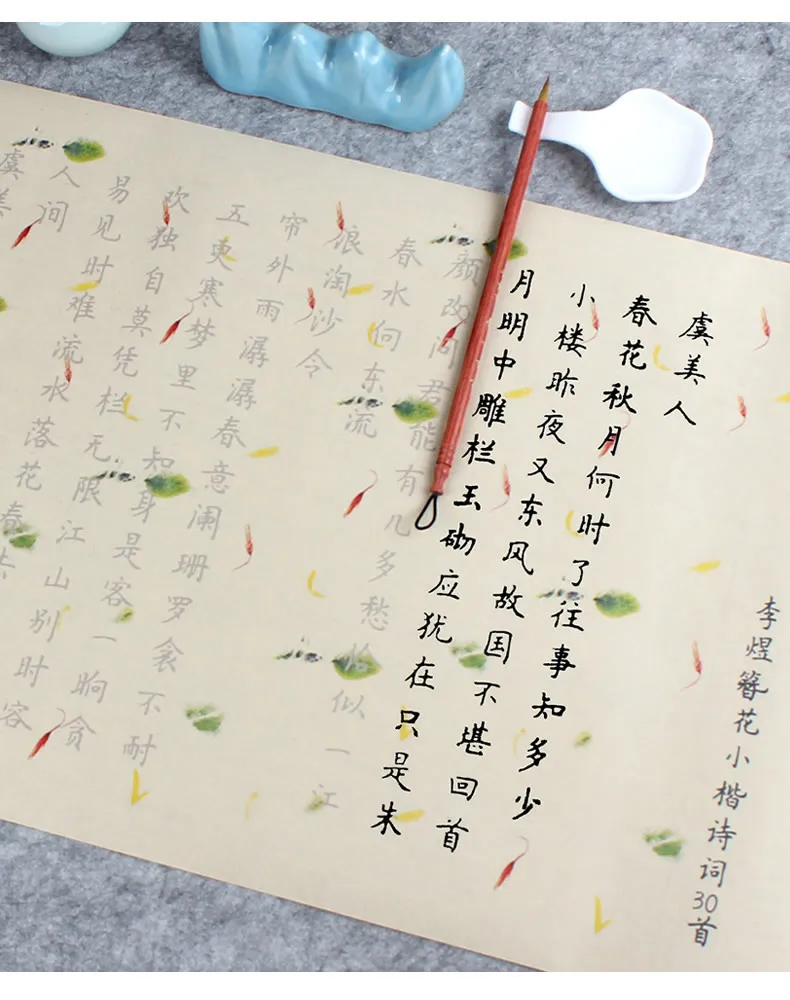 李煜簪花小楷诗词30首
虞美人
春花秋月何时了往事知多少
小楼昨夜又东风故国不堪回首
月明中雕栏玉砌应犹在只是朱
颜改问君能有几多愁恰似一江
春水向东流
浪淘沙令
帘外雨潺潺春意阑珊罗衾不耐
五更寒梦里不知身是客一晌贪
欢独自莫凭栏无限江山别时容
易见时难流水落花春去
人间
虞美